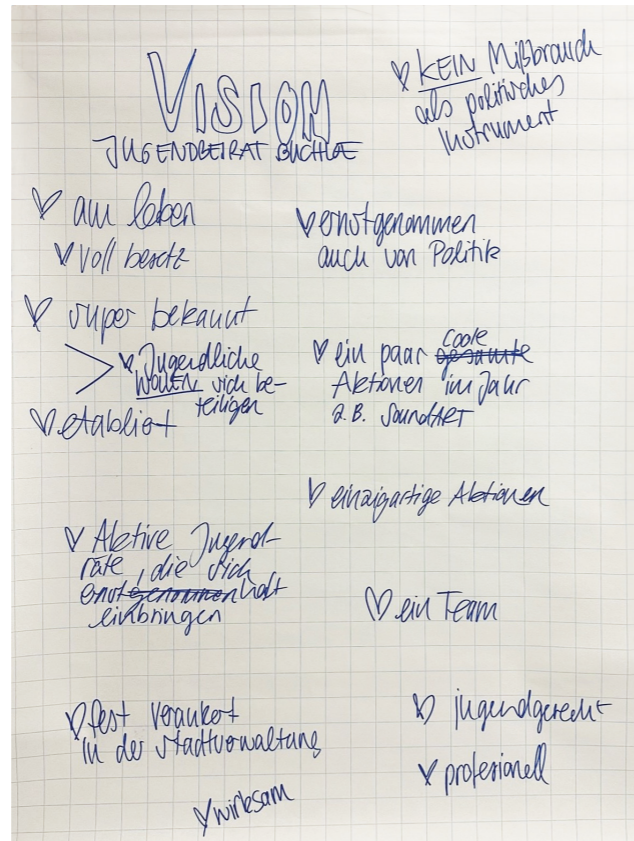 VISION
JUGENDBEIRAT BUCHLOE
KEIN Mißbrauch
als politisches
Instrument
am leben
voll besetz
super bekannt
Jugendliche
WOLLEN sich be-
teiligen
etabliert
ernstgenommen
auch von Politik
ein paar coole
Aktionen im Jahr
z.B. SoundART
einzigartige Aktionen
Aktive Jugend-
räte, die sich
ernsthaft
einbringen
ein Team
fest verankert
in der Stadtverwaltung
jugendgerecht
profesionell
wirksam